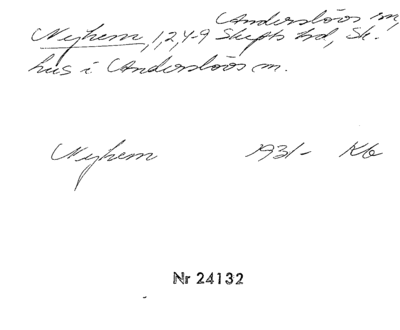 Anderslövs sn,
Nyhem, 1,2,4-9 Skytts hd, Sk.
hus i Anderslövs sn.
Nyhem 1931- Kb
Nr 24132